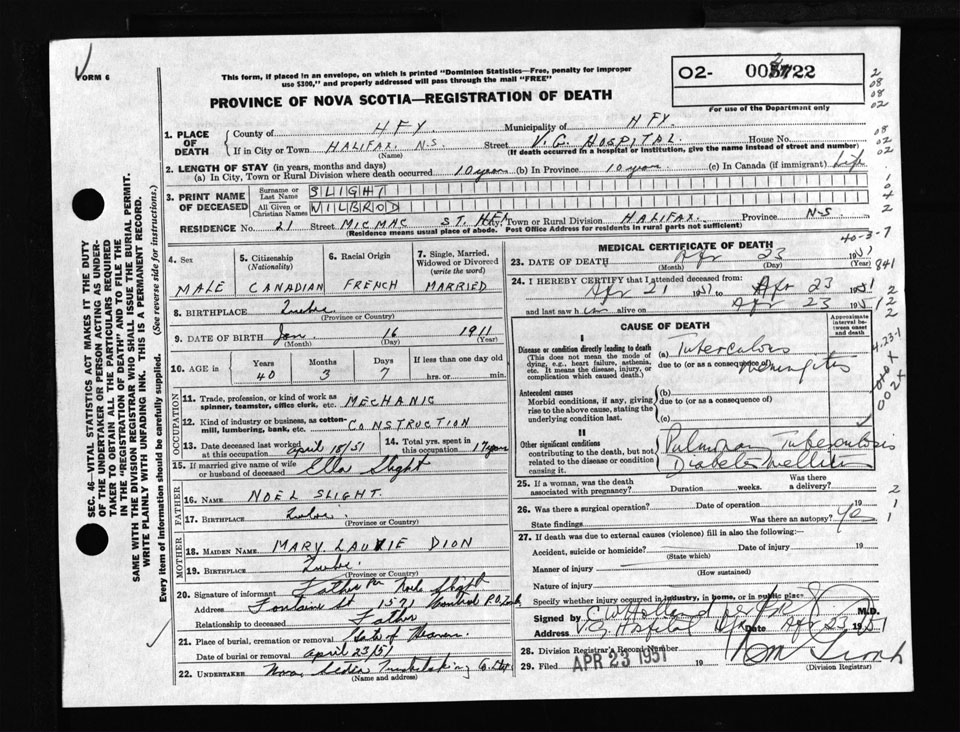 FORM 6
This form, if placed in an envelope, on which is printed "Dominion Statistics—Free, penalty for improper
use $300," and properly addressed will pass through the mail "FREE"
PROVINCE OF NOVA SCOTIA—REGISTRATION OF DEATH
02- 00 22
For use of the Department only
SEC. 46—VITAL STATISTICS ACT MAKES IT THE DUTY
OF THE UNDERTAKER OR PERSON ACTING AS UNDER-
TAKER TO OBTAIN ALL THE PARTICULARS REQUIRED
IN THE "REGISTRATION OF DEATH" AND TO FILE THE
SAME WITH THE DIVISION REGISTRAR WHO SHALL ISSUE THE BURIAL PERMIT.
WRITE PLAINLY WITH UNFADING INK. THIS IS A PERMANENT RECORD.
Every item of information should be carefully supplied. (See reverse side for instructions.)
1. PLACE OF DEATH
County of HFY Municipality of HFY
If in City or Town HALIFAX N.S. Street V.G. HOSPITAL House No.
(Name) (If death occurred in a hospital or institution, give the name instead of street and number)
2. LENGTH OF STAY (in years, months and days)
(a) In City, Town or Rural Division where death occurred 10 years (b) In Province 10 years (c) In Canada (if immigrant) Life
3. PRINT NAME OF DECEASED
Surname or Last Name SLIGHT
All Given or Christian Names WILBROD
RESIDENCE No. 21 Street MICMAC ST. City, Town or Rural Division HALIFAX Province N-S
(Residence means usual place of abode. Post Office Address for residents in rural parts not sufficient)
4. Sex MALE
5. Citizenship (Nationality) CANADIAN
6. Racial Origin FRENCH
7. Single, Married, Widowed or Divorced (write the word) MARRIED
8. BIRTHPLACE
(Province or Country)
9. DATE OF BIRTH Jan 16 1911
(Month) (Day) (Years)
10. AGE in Years 40 Months 3 Days 7 If less than one day old hrs. or min.
OCCUPATION
11. Trade, profession, or kind of work as spinner, teamster, office clerk, etc. MECHANIC
12. Kind of industry or business, as cotton-mill, lumbering, bank, etc. CONSTRUCTION
13. Date deceased last worked at this occupation April 18/51 14. Total yrs. spent in this occupation 17 years
15. If married give name of wife or husband of deceased Ella Slight
FATHER
16. NAME NOEL SLIGHT.
17. BIRTHPLACE
(Province or Country)
MOTHER
18. MAIDEN NAME MARY LAURIE DION
19. BIRTHPLACE
(Province or Country)
20. Signature of informant Father Per Noel Slight
Address St 1571
Relationship to deceased Father
21. Place of burial, cremation or removal Gate of Heaven
Date of burial or removal april 23/51
22. UNDERTAKER Nova Scotia Undertaking Co
(Name and address)
40-3-7
MEDICAL CERTIFICATE OF DEATH
23. DATE OF DEATH Apr 23 1951
(Month) (Day) (Year)
841
24. I HEREBY CERTIFY that I attended deceased from:
Apr 21 1951 to Apr 23 1951
and last saw him alive on Apr 23 1951
CAUSE OF DEATH
Approximate interval between onset and death
I
Disease or condition directly leading to death
(This does not mean the mode of dying, e.g., heart failure, asthenia, etc. It means the disease, injury, or complication which caused death.)
(a) Tuberculous Meningitis
due to (or as a consequence of)
Antecedent causes
Morbid conditions, if any, giving rise to the above cause, stating the underlying condition last.
(b)
due to (or as a consequence of)
(c)
II
Other significant conditions
contributing to the death, but not related to the disease or condition causing it.
Pulmonary Tuberculosis
Diabetes Mellitus
25. If a woman, was the death associated with pregnancy? Duration weeks. Was there a delivery?
26. Was there a surgical operation? Date of operation 19
State findings Was there an autopsy?
27. If death was due to external causes (violence) fill in also the following:—
Accident, suicide or homicide? Date of injury 19
(State which)
Manner of injury
(How sustained)
Nature of injury
Specify whether injury occurred in industry, in home, or in public place
Signed by C W Holland per M.D.
Address V G Hospital Hfx Date Apr 23 1951
28. Division Registrar's Record Number
29. Filed APR 23 1951 19
(Division Registrar)